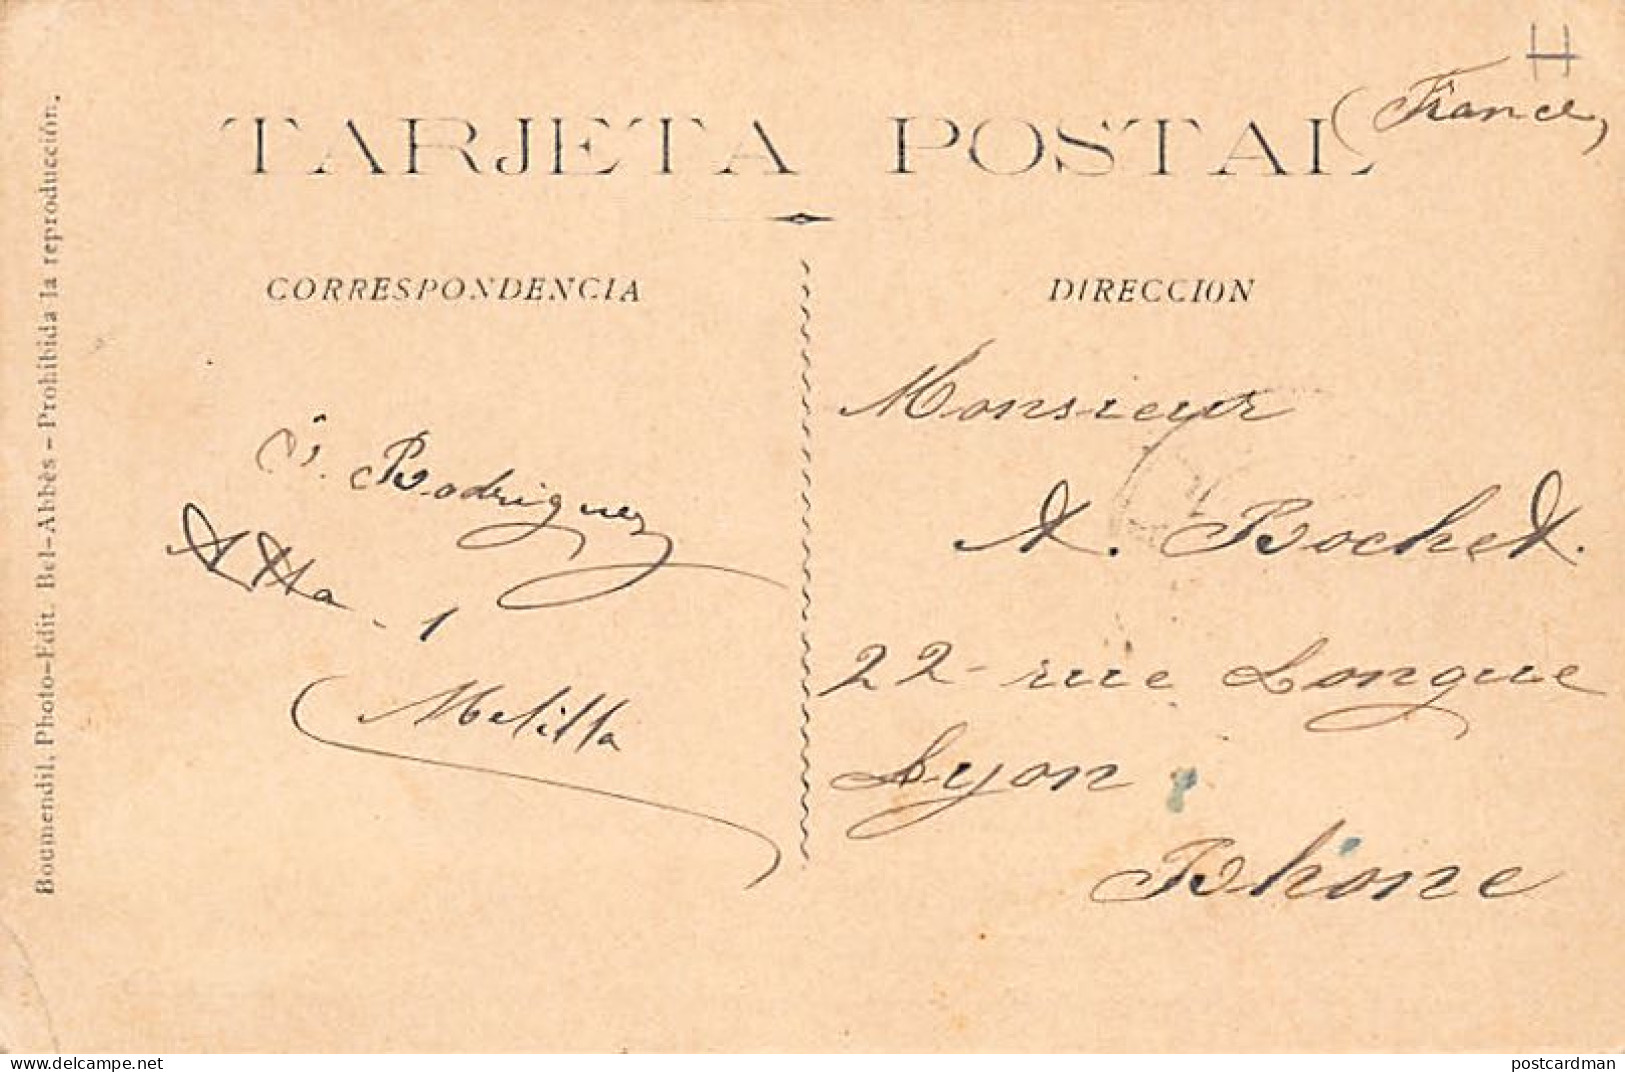 (France)
TARJETA POSTAL
CORRESPONDENCIA
DIRECCION
Rodriguez
Melilla
Monsieur
A. Bochet.
22 - rue Longue
Lyon
Rhône
Boumendil. Photo-Edit. Bel-Abbès - Prohibida la reproducción.
delcampe.net
postcardman